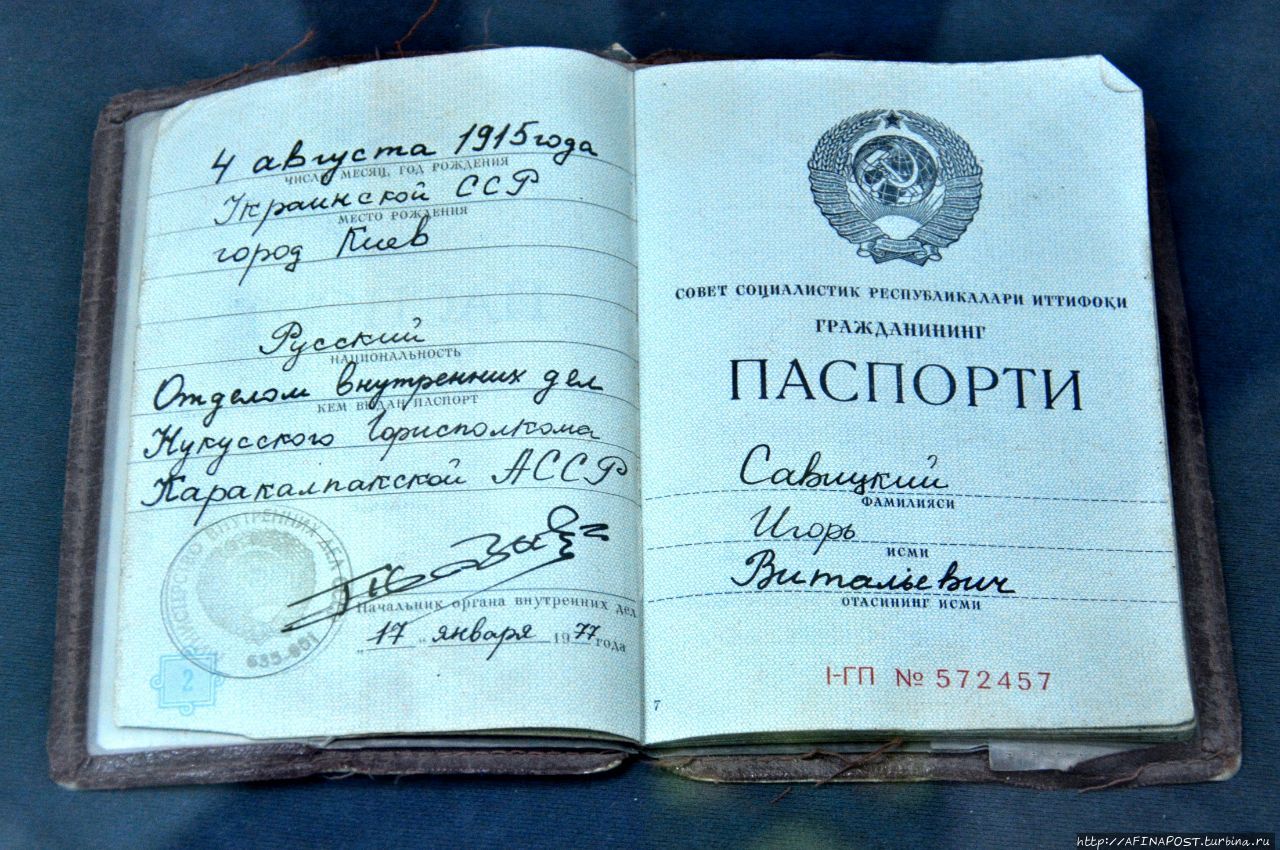 4 августа 1915 года
ЧИСЛО, МЕСЯЦ, ГОД РОЖДЕНИЯ
Украинской ССР
МЕСТО РОЖДЕНИЯ
город Киев
Русский
НАЦИОНАЛЬНОСТЬ
Отделом внутренних дел
КЕМ ВЫДАН ПАСПОРТ
Нукусского Горисполкома
Каракалпакской АССР
ВНУТРЕННИХ ДЕЛ
635-051
Начальник органа внутренних дел
"17" января 1977 года
2
СОВЕТ СОЦИАЛИСТИК РЕСПУБЛИКАЛАРИ ИТТИФОҚИ
ГРАЖДАНИНИНГ
ПАСПОРТИ
Савицкий
ФАМИЛИЯСИ
Игорь
ИСМИ
Витальевич
ОТАСИНИНГ ИСМИ
I-ГП № 572457
7
http://AFINAPOST.turbina.ru